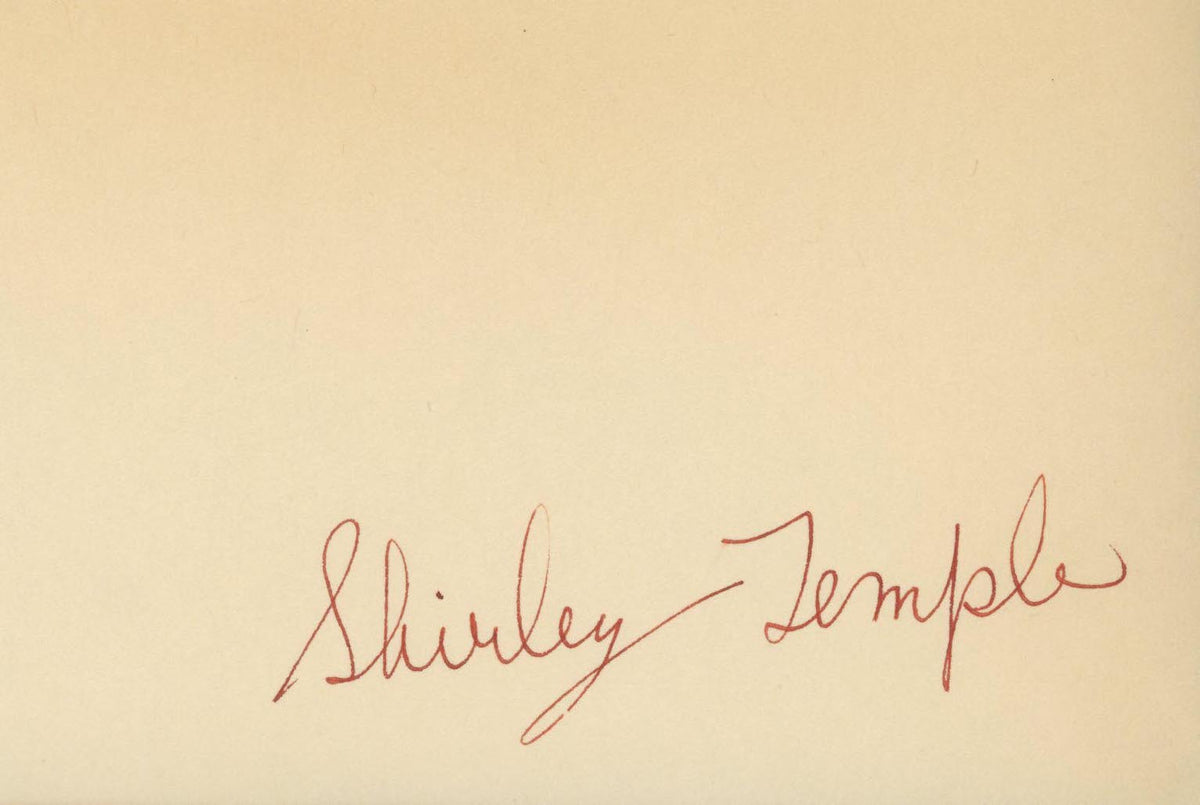 Shirley Temple